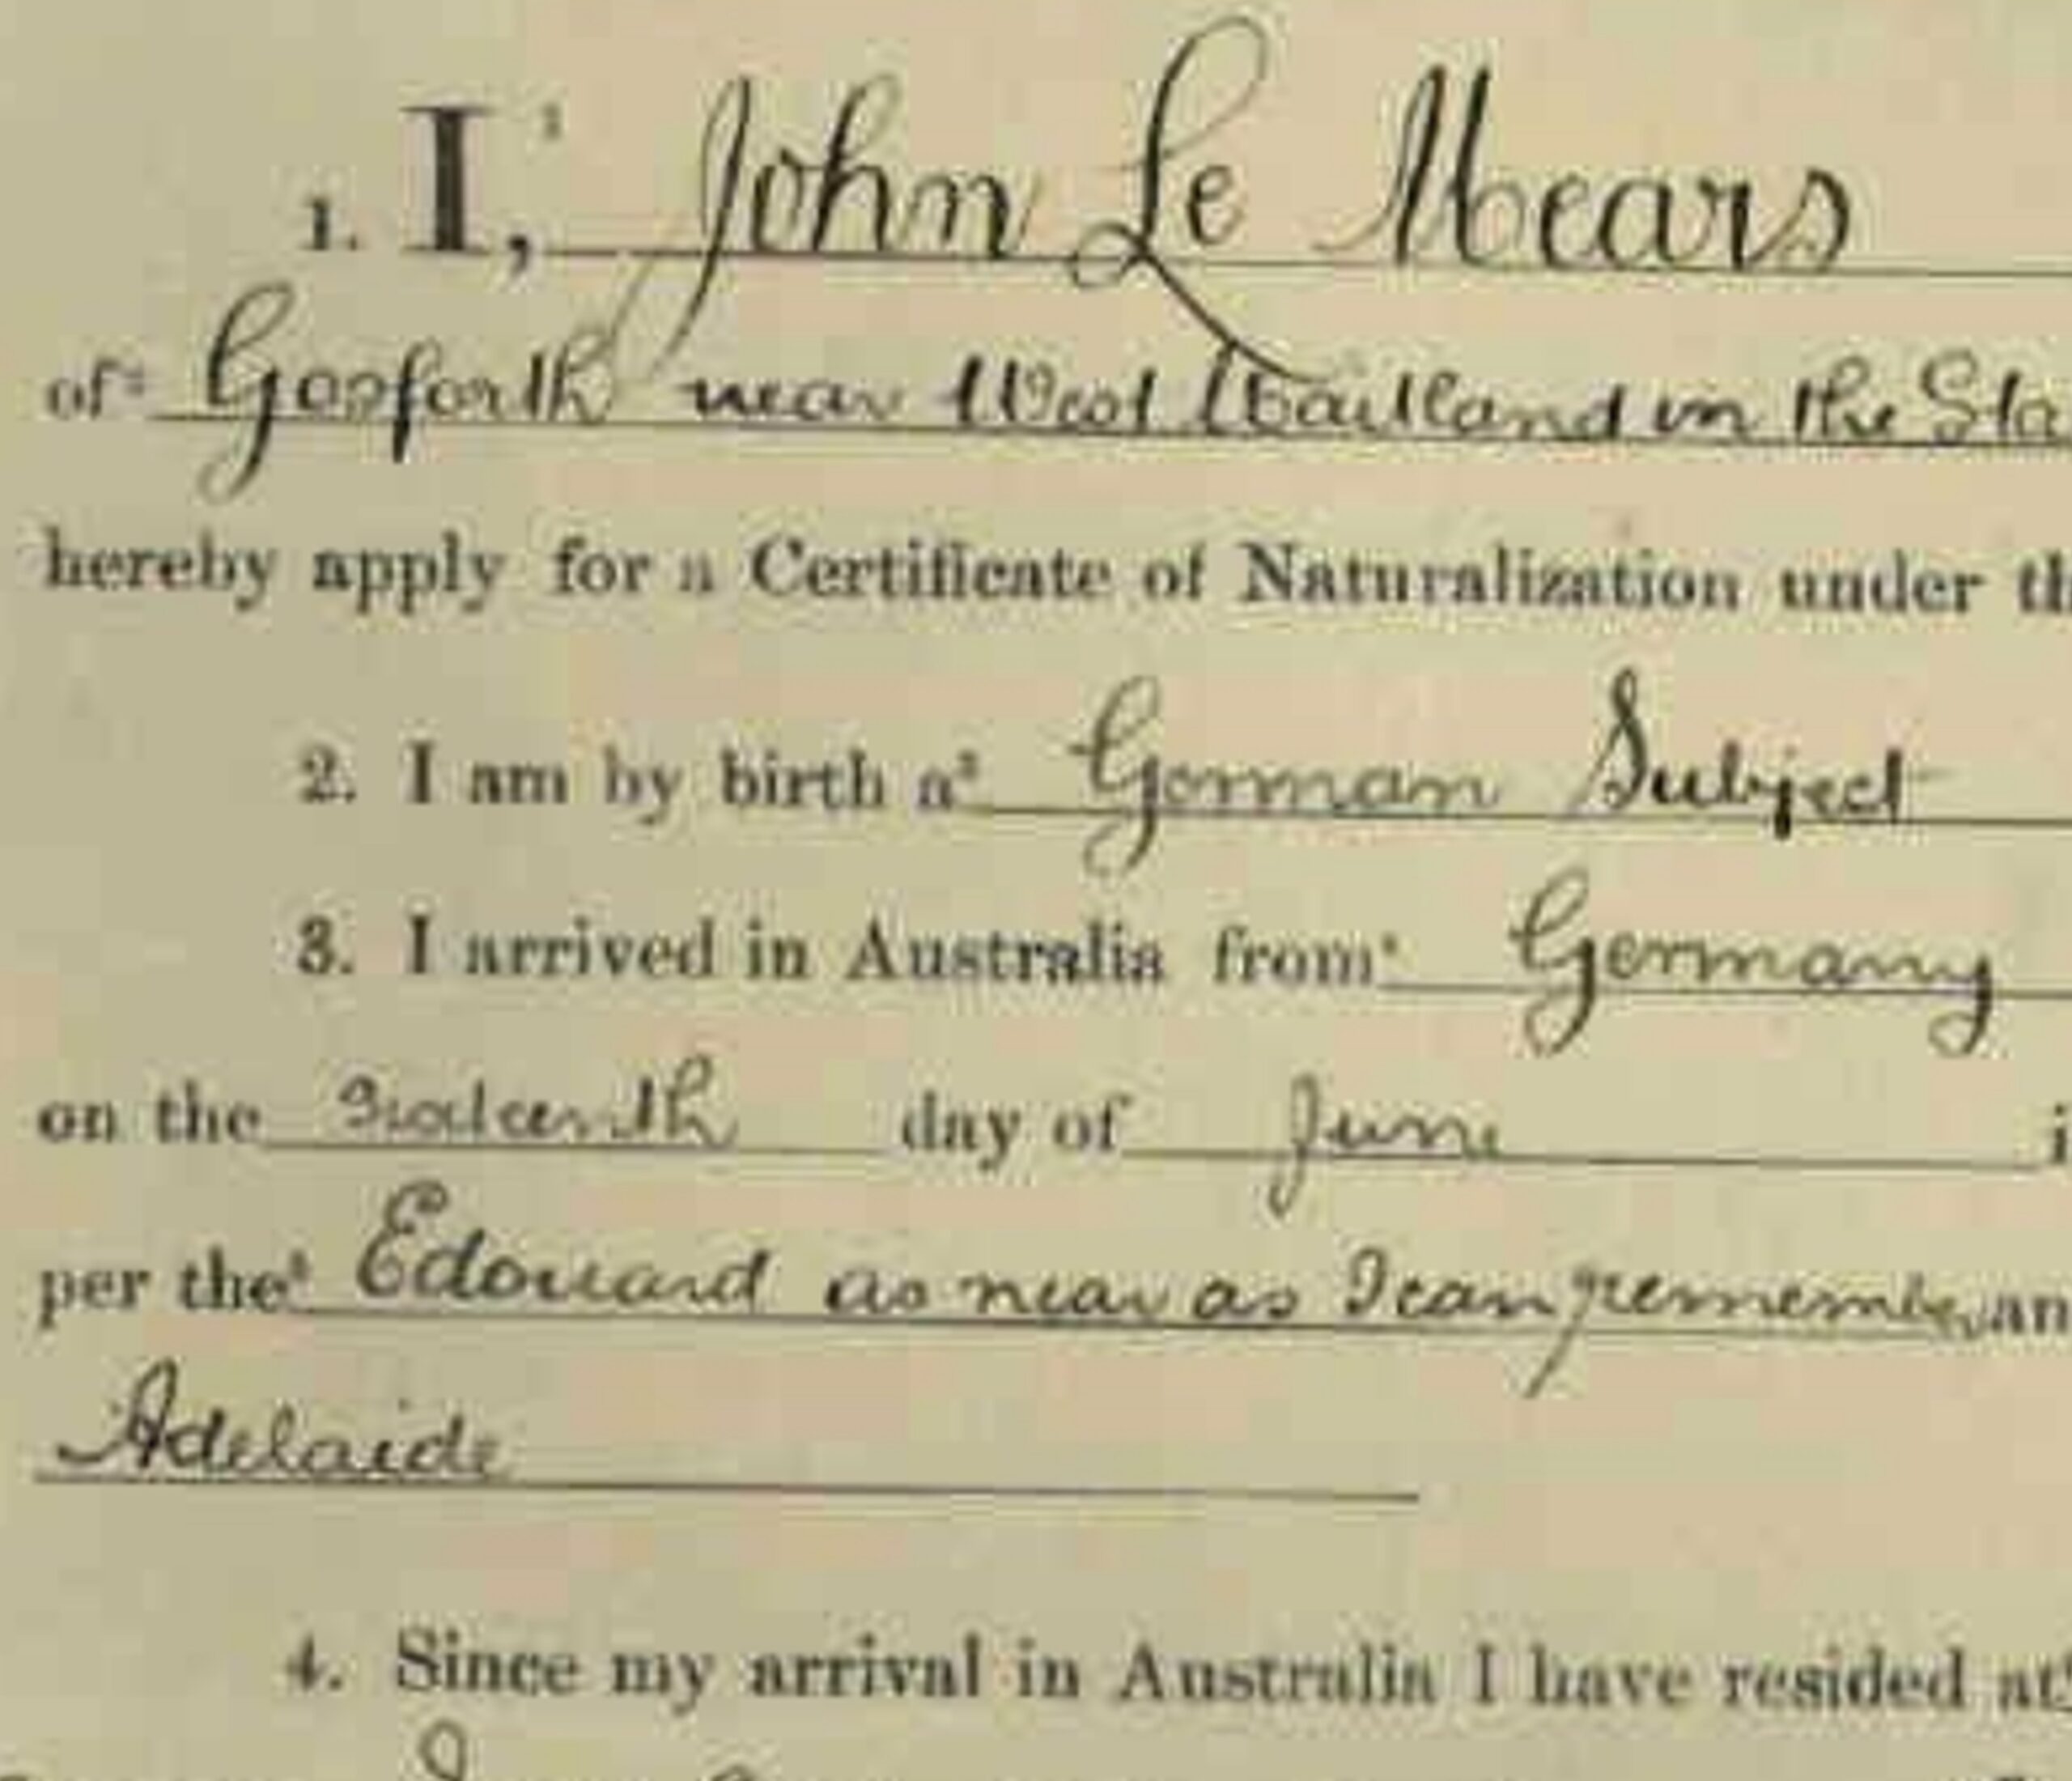 1. I, John Le Mears
of Gosforth near West Maitland in the Sta
hereby apply for a Certificate of Naturalization under th
2. I am by birth a German Subject
3. I arrived in Australia from Germany
on the Sixteenth day of June i
per the Edouard as near as I can remember an
Adelaide
4. Since my arrival in Australia I have resided at